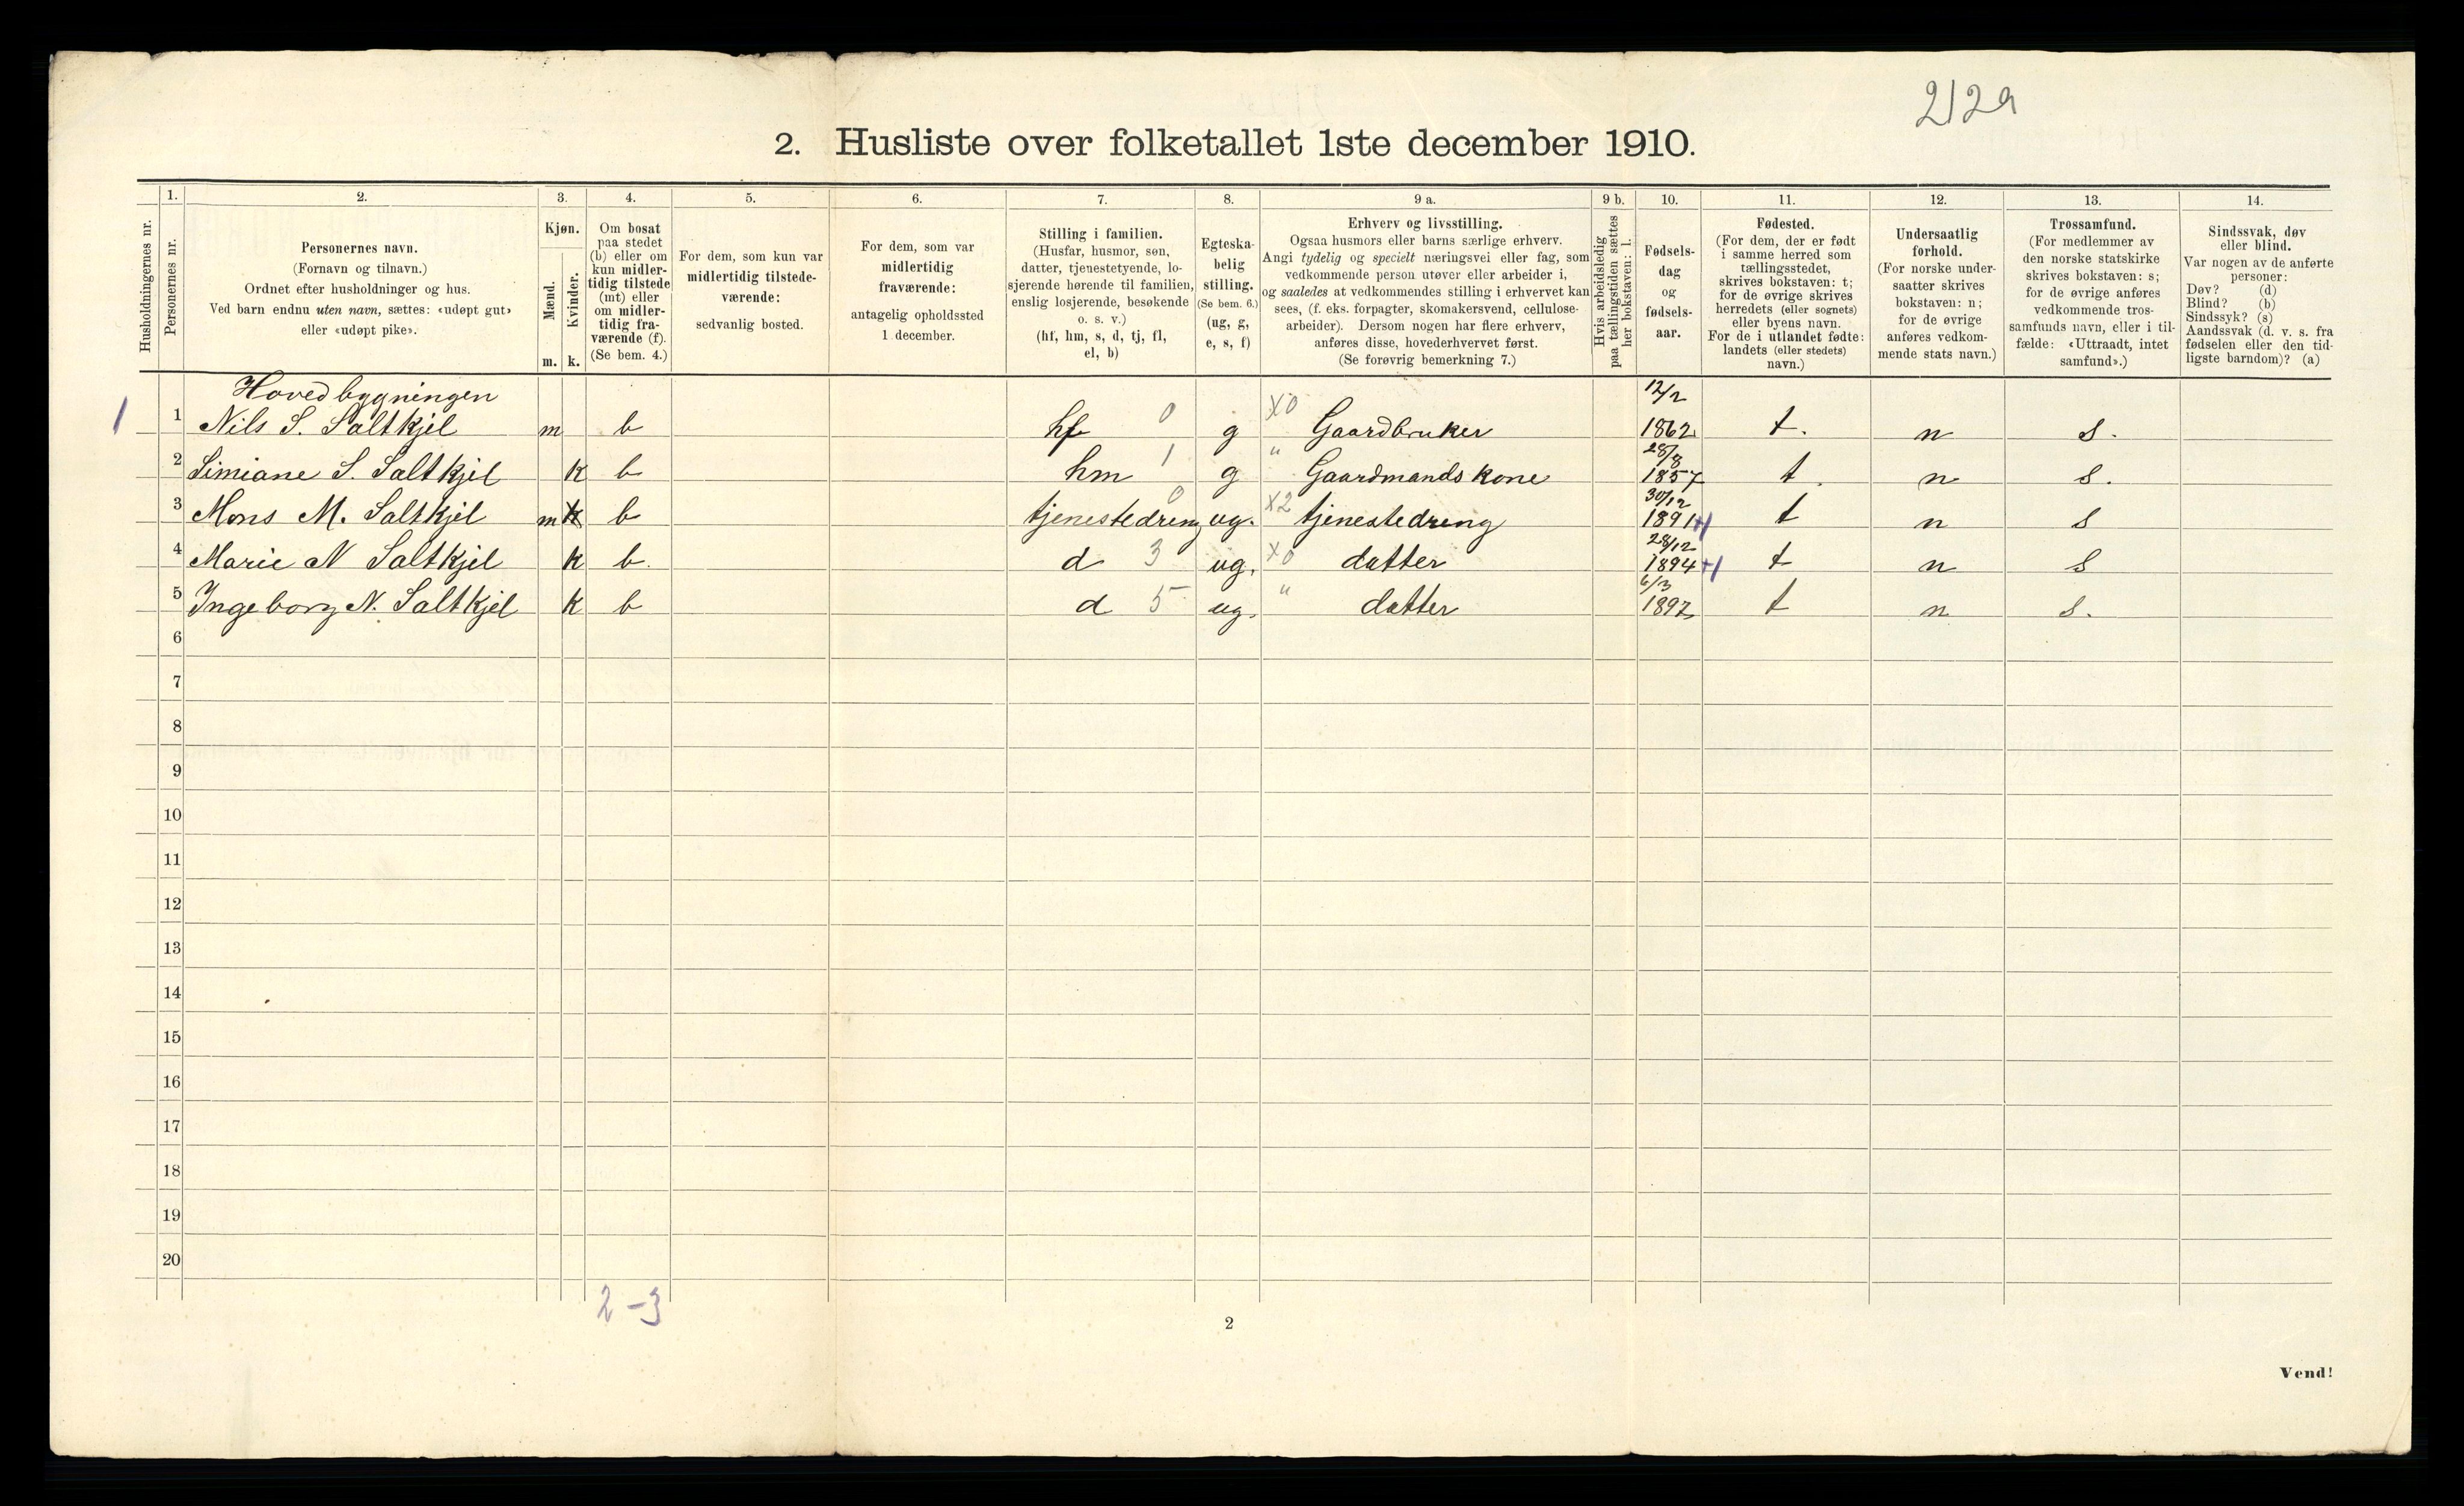 212a
2. Husliste over folketallet 1ste december 1910.
Husholdningernes nr.
1.
Personernes nr.
2.
Personernes navn.
(Fornavn og tilnavn.)
Ordnet efter husholdninger og hus.
Ved barn endnu uten navn, sættes: «udøpt gut»
eller «udøpt pike».
3.
Kjøn.
Mænd.
Kvinder.
m. k.
4.
Om bosat
paa stedet
(b) eller om
kun midler-
tidig tilstede
(mt) eller
om midler-
tidig fra-
værende (f).
(Se bem. 4.)
5.
For dem, som kun var
midlertidig tilstede-
værende:
sedvanlig bosted.
6.
For dem, som var
midlertidig
fraværende:
antagelig opholdssted
1 december.
7.
Stilling i familien.
(Husfar, husmor, søn,
datter, tjenestetyende, lo-
sjerende hørende til familien,
enslig losjerende, besøkende
o. s. v.)
(hf, hm, s, d, tj, fl,
el, b)
8.
Egteska-
belig
stilling.
(Se bem. 6.)
(ug, g,
e, s, f)
9 a.
Erhverv og livsstilling.
Ogsaa husmors eller barns særlige erhverv.
Angi tydelig og specielt næringsvei eller fag, som
vedkommende person utøver eller arbeider i,
og saaledes at vedkommendes stilling i erhvervet kan
sees, (f. eks. forpagter, skomakersvend, cellulose-
arbeider). Dersom nogen har flere erhverv,
anføres disse, hovederhvervet først.
(Se forøvrig bemerkning 7.)
9 b.
Hvis arbeidsledig
paa tællingstiden sættes
her bokstaven: l.
10.
Fødsels-
dag
og
fødsels-
aar.
11.
Fødested.
(For dem, der er født
i samme herred som
tællingsstedet,
skrives bokstaven: t;
for de øvrige skrives
herredets (eller sognets)
eller byens navn.
For de i utlandet fødte:
landets (eller stedets)
navn.)
12.
Undersaatlig
forhold.
(For norske under-
saatter skrives
bokstaven: n;
for de øvrige
anføres vedkom-
mende stats navn.)
13.
Trossamfund.
(For medlemmer av
den norske statskirke
skrives bokstaven: s;
for de øvrige anføres
vedkommende tros-
samfunds navn, eller i til-
fælde: «Uttraadt, intet
samfund».)
14.
Sindssvak, døv
eller blind.
Var nogen av de anførte
personer:
Døv? (d)
Blind? (b)
Sindssyk? (s)
Aandssvak (d. v. s. fra
fødselen eller den tid-
ligste barndom)? (a)
Hovedbygningen
1 1 Nils S. Saltkjel m b hf 0 g X0 Gaardbruker 12/2 1862 t. n s.
2 Simiane S. Saltkjel k b hm 1 g " Gaardmandskone 28/8 1857 t. n s.
3 Mons M. Saltkjel m k b tjenestedreng 0 ug. X2 tjenestedreng 30/12 1891 +1 t n s
4 Marie N Saltkjel k b. d 3 ug. X0 datter 28/12 1894 +1 t n s
5 Ingeborg N. Saltkjel k b d 5 ug. " datter 6/3 1897 t n s.
6
7
8
9
10
11
12
13
14
15
16
17
18
19
20
2 – 3
2
Vend!